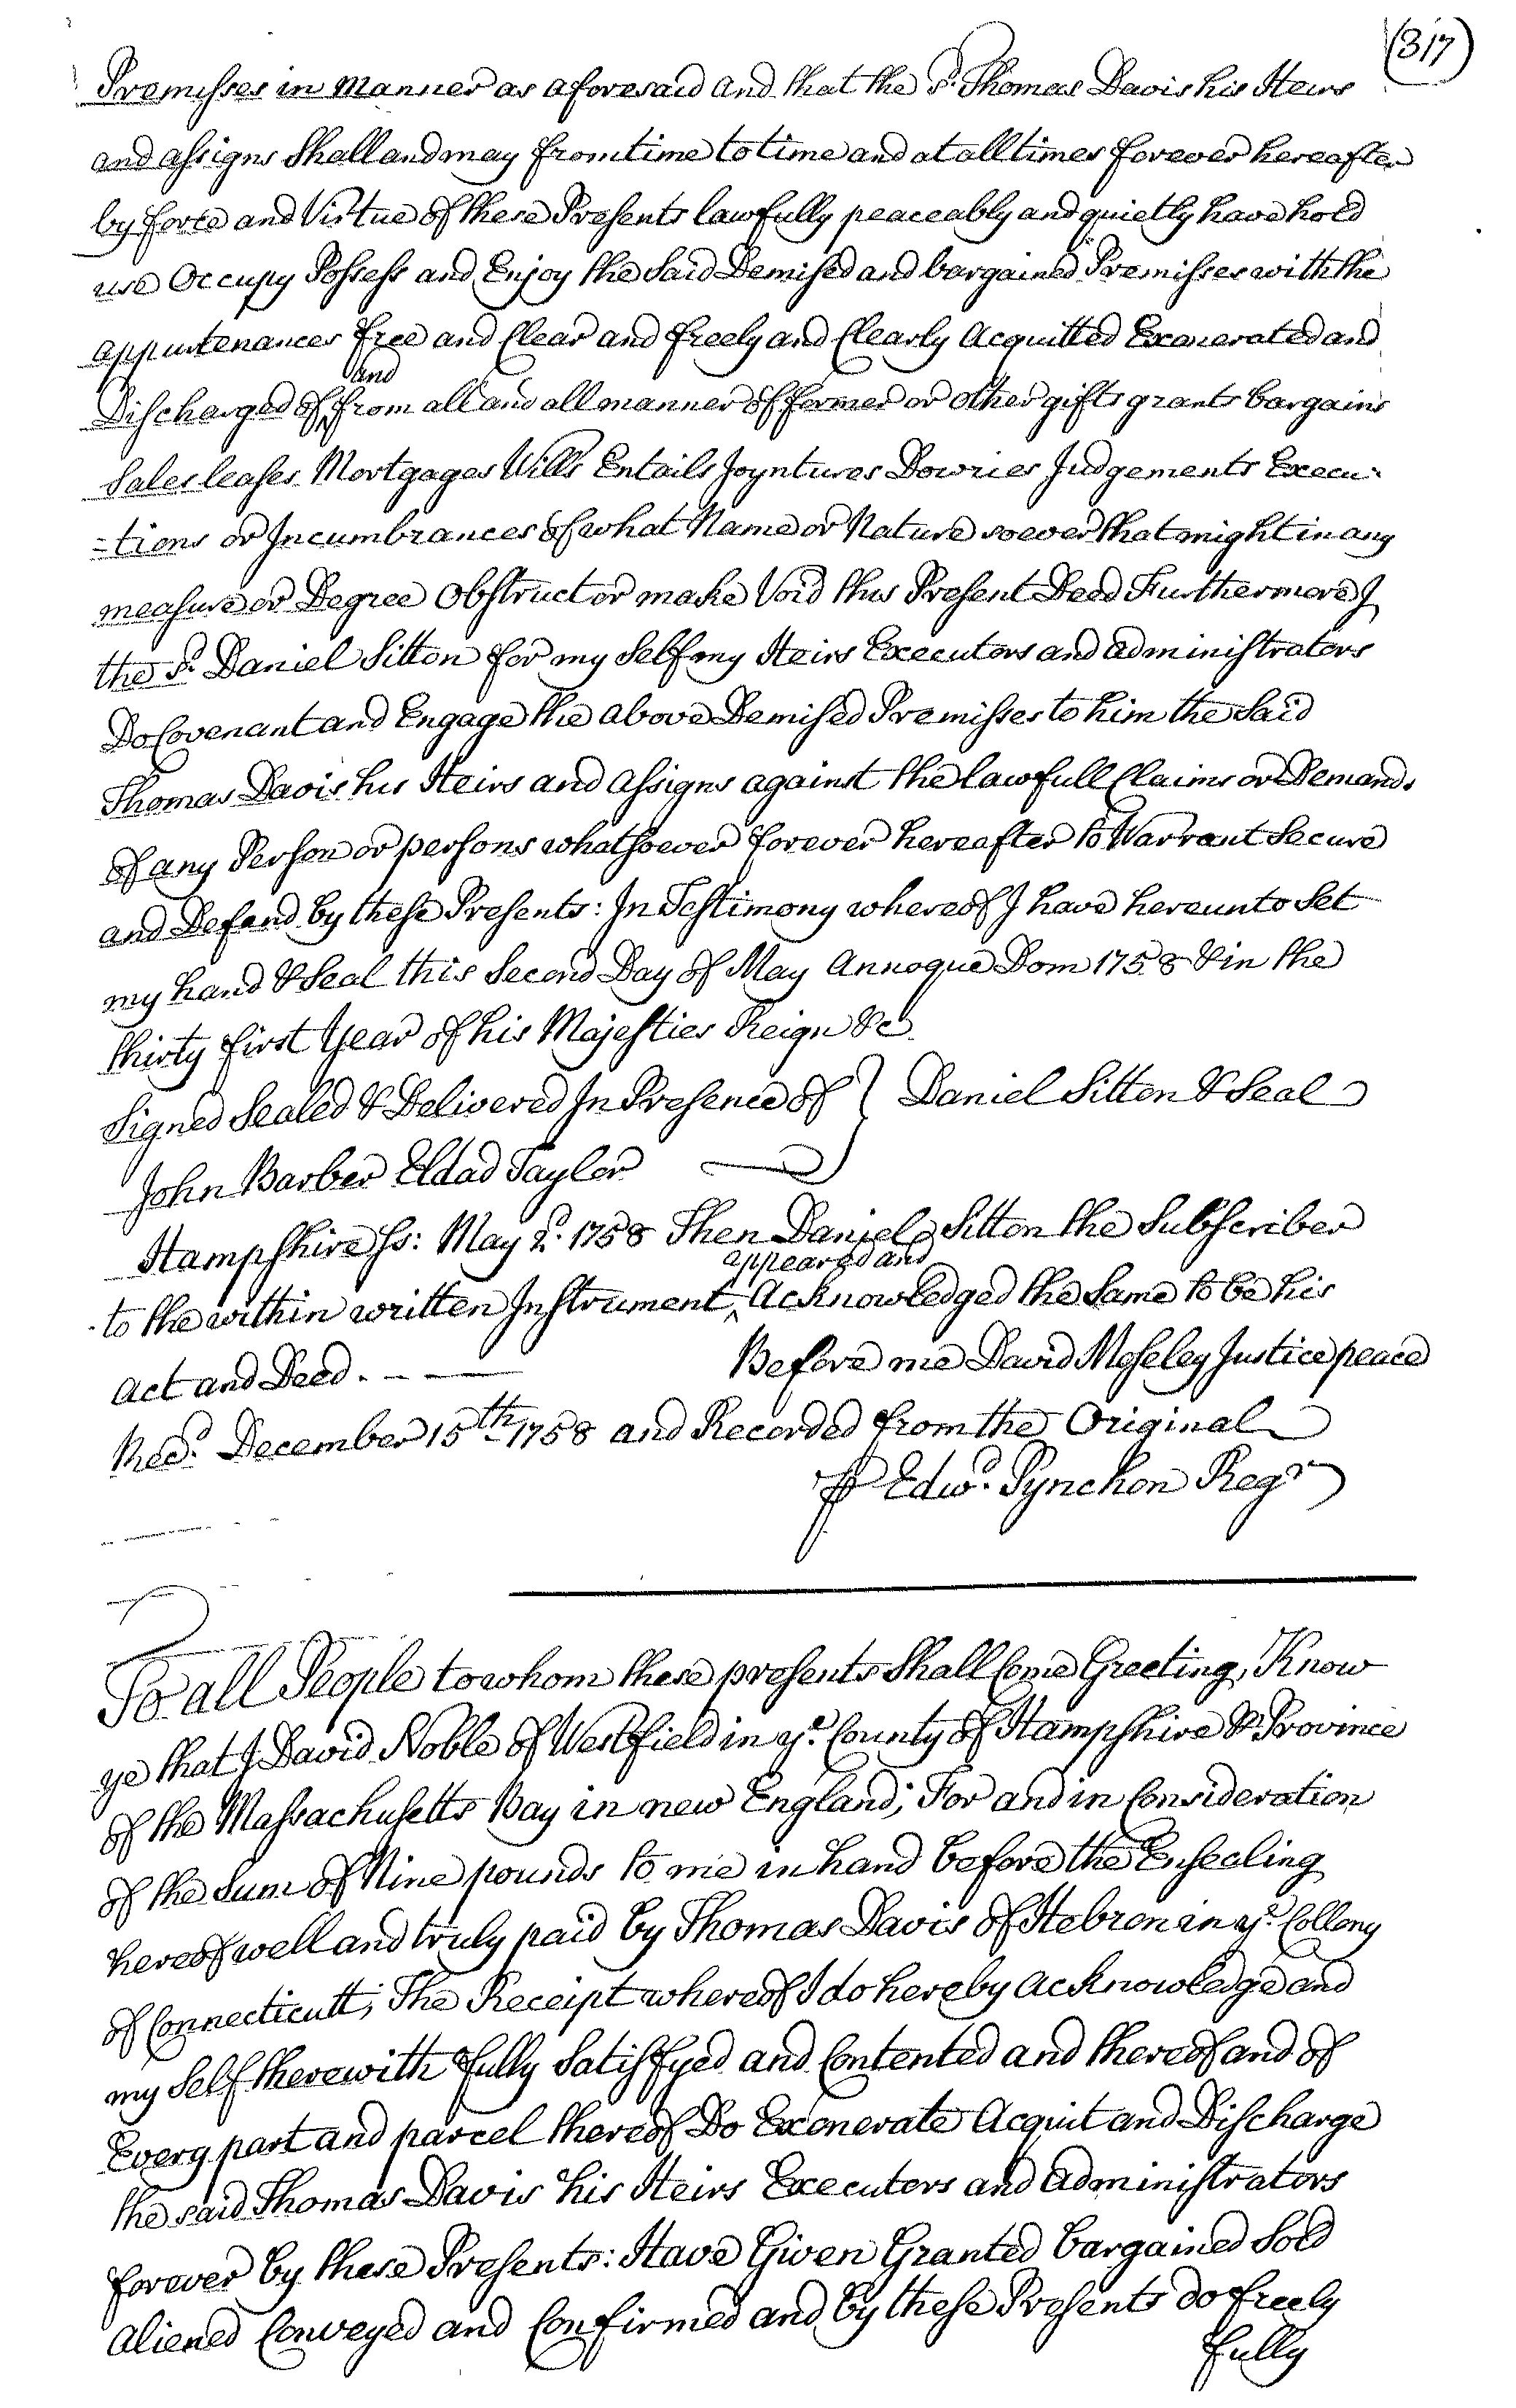 (317)
Premisses in Manner as aforesaid and that the sd. Thomas Davis his Heirs
and assigns Shall and may from time to time and at all times forever hereafter
by force and Virtue of these Presents lawfully peaceably and quietly have hold
use Occupy Possess and Enjoy the Said Demised and bargained Premisses with the
appurtenances free and Clear and freely and Clearly Acquitted Exonerated and
and
Discharged of ‸ from all and all manner of former or other gifts grants bargains
Sales leases Mortgages Wills Entails Joyntures Dowries Judgements Execu-
=tions or Incumbrances of what Name or Nature soever that might in any
measure or Degree Obstruct or make Void this Present Deed Furthermore I
the sd. Daniel Sitton for my Self my Heirs Executors and administrators
Do Covenant and Engage the above Demised Premisses to him the Said
Thomas Davis his Heirs and assigns against the lawfull Claims or Demands
of any Person or persons whatsoever forever hereafter to Warrant Secure
and Defend by these Presents: In Testimony whereof I have hereunto Set
my hand & Seal this Second Day of May Annoque Dom 1758 & in the
thirty first Year of his Majesties Reign &c.
Signed Sealed & Delivered In Presence of } Daniel Sitton & Seal
John Barber Eldad Taylor
Hampshire ss: May 2d. 1758 Then Daniel Sitton the Subscriber
appeared and
to the within written Instrument ‸ Acknowledged the Same to be his
Act and Deed. - - —
Before me David Moseley Justice peace
Recd. December 15th 1758 and Recorded from the Original
⅌ Edwd. Pynchon Regr
To all People to whom these presents Shall Come Greeting, Know
ye that I David Noble of Westfield in ye. County of Hampshire & Province
of the Massachusetts Bay in new England; For and in Consideration
of the Sum of Nine pounds to me in hand before the Ensealing
hereof well and truly paid by Thomas Davis of Hebron in ye. Collony
of Connecticutt; The Receipt whereof I do hereby acknowledge and
my Self therewith fully Satisfyed and Contented and thereof and of
Every part and parcel thereof Do Exonerate Acquit and Discharge
the said Thomas Davis his Heirs Executors and administrators
forever by these Presents: Have Given Granted bargained Sold
aliened Conveyed and Confirmed and by these Presents do freely
fully